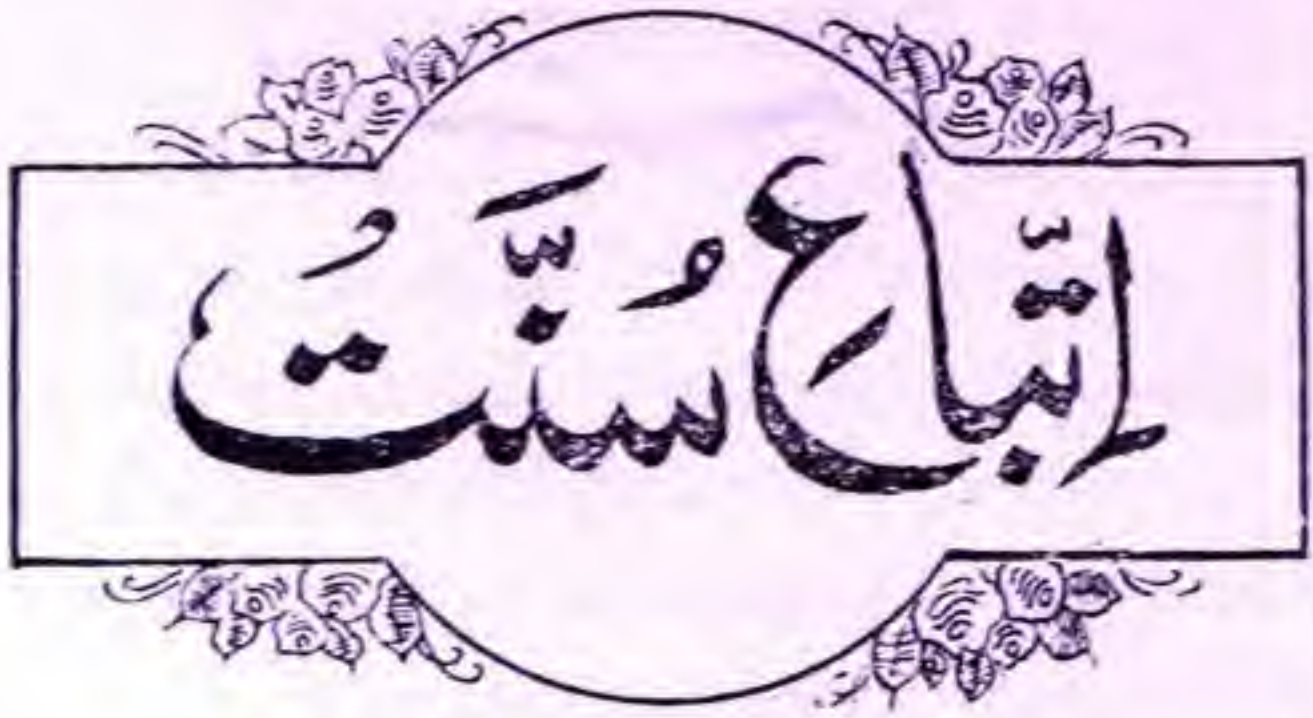 اِتّباعِ سُنَّتُ